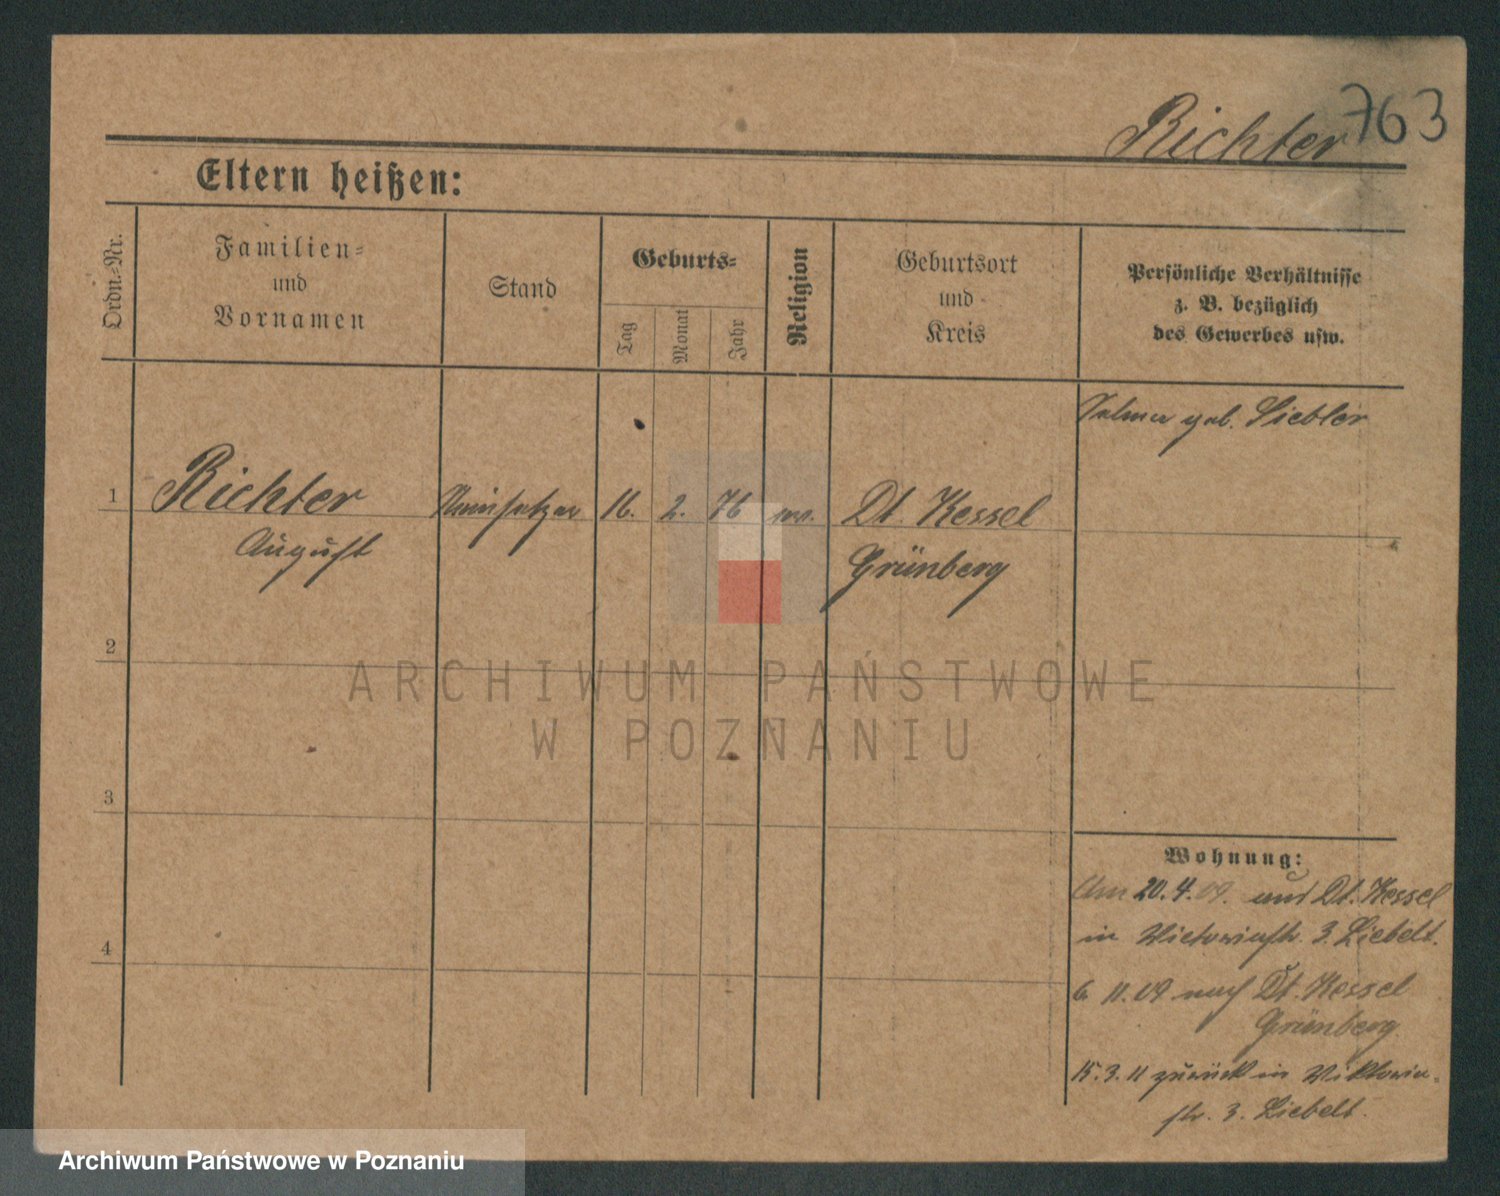 Richter 763
Eltern heißen:
Ordn.-Nr.
Familien-
und
Vornamen
Stand
Geburts-
Tag
Monat
Jahr
Religion
Geburtsort
und
Kreis
Persönliche Verhältnisse
z. B. bezüglich
des Gewerbes usw.
geb. Siebler
1 Richter Steinsetzer 16. 2. 76 ev. Dt. Kessel
August Grünberg
2
3
4
Wohnung:
Am 20.4.09. aus Dt. Kessel
in Victoriastr. 3. Liebelt.
6. 11. 09 nach Dt. Kessel
Grünberg
15. 3. 11 zurück in Viktoria-
str. 3. Liebelt.
ARCHIWUM PAŃSTWOWE
W POZNANIU
Archiwum Państwowe w Poznaniu